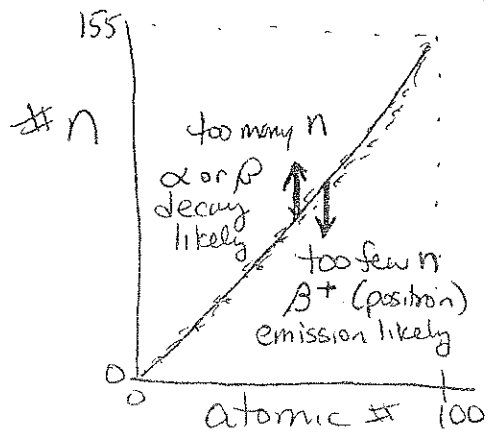 155
# n
too many n
α or β
decay
likely
too few n
β+ (positron)
emission likely
0
0
100
atomic #